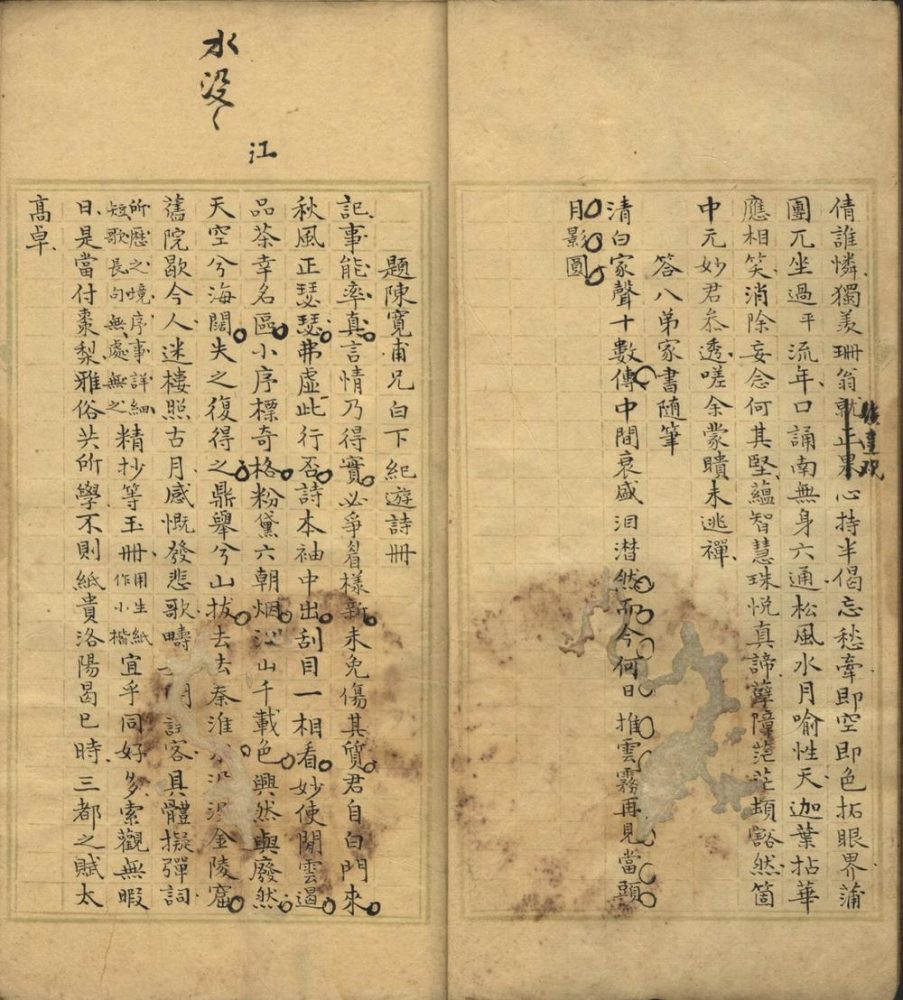 倩誰憐獨羨珊翁就正果心持半偈忘愁牽即空即色拓眼界蒲
團兀坐過平流年口誦南無身六通松風水月喻性天迦葉拈華
應相笑消除妄念何其堅蘊智慧珠悦真諦孽障茫茫頓豁然箇
中元妙君叅透嗟余蒙瞶未逃禪
答八弟家書随筆
清白家聲十數傳中間衰盛泪潜然而今何日推雲霧再見當頭
月影圓
水没〻
江
題陳寛甫兄白下紀遊詩冊
記事能率真言情乃得實必爭眉樣新未免傷其質君自白門來
秋風正瑟瑟弗虚此行否詩本袖中出刮目一相看妙使閒雲遏
品茶幸名區小序標奇格粉黛六朝烟江山千載色興然與廢然
天空兮海闊失之復得之鼎舉兮山拔去去秦淮金陵窟
舊院歇今人迷樓照古月感慨發悲歌疇客具體擬彈詞
所歷之境序事詳細短歌長句無處無之精抄等玉冊用生紙作小楷宜乎同好多索觀無暇
日是當付棗梨雅俗共所學不則紙貴洛陽曷已時三都之賦太
高卓